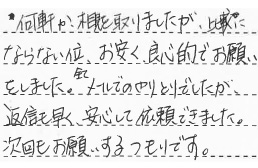 *何軒か、相見を取りましたが、比較に
ならない位、お安く、良心的でお願い
をしました。全てメールでのやりとりでしたが、
返信も早く、安心して依頼できました。
次回もお願いするつもりです。